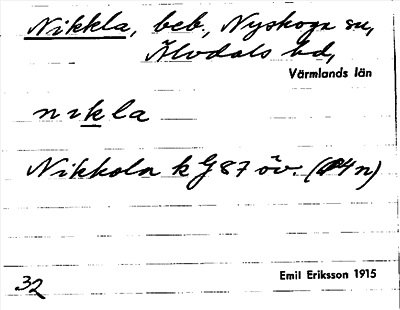 Nikkla, beb., Nyskoga sn,
Älvdals hd,
Värmlands län
nikla
Nikkola k G 87 öv. (4 n)
32
Emil Eriksson 1915